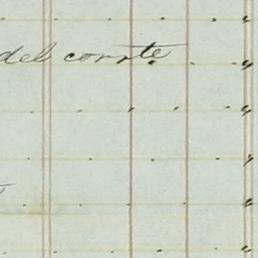 del corrte